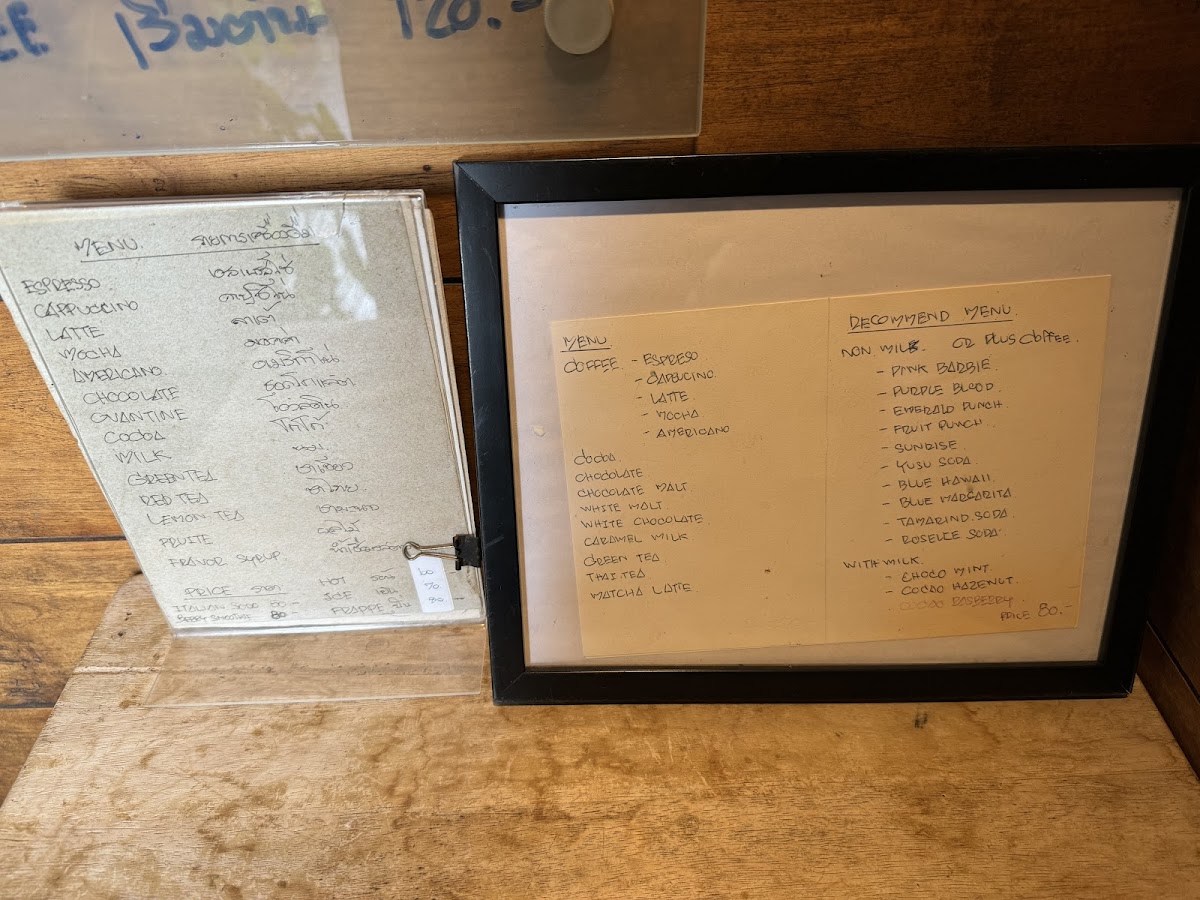 EE เริ่มต้น 120.-
MENU. รายการเครื่องดื่ม
ESPRESSO
CAPPUCCINO
LATTE ลาเต้
MOCHA
AMERICANO
CHOCOLATE
OVANTINE
COCOA โกโก้
MILK นม
GREEN TEA ชาเขียว
RED TEA ชาไทย
LEMON TEA ชามะนาว
FRUITE ผลไม้
FRAVOR SYRUP
PRICE ราคา HOT ร้อน 100
ICE เย็น 70
ITALIAN SODA FRAPPE ปั่น 80
BERRY SMOOTHIE 80
MENU.
COFFEE - ESPRESO
- CAPPUCINO.
- LATTE.
- MOCHA
- AMERICANO
COCOA.
CHOCOLATE
CHOCOLATE MALT
WHITE MALT
WHITE CHOCOLATE
CARAMEL MILK
GREEN TEA
THAI TEA
MATCHA LATTE
RECOMMEND MENU.
NON MILK. OR PLUS COFFEE.
- PINK BARBIE.
- PURPLE BLOOD.
- EMERALD PUNCH.
- FRUIT PUNCH.
- SUNRISE.
- YUSU SODA.
- BLUE HAWAII.
- BLUE MARGARITA
- TAMARIND SODA.
- ROSELLE SODA.
WITH MILK.
- CHOCO MINT.
- COCAO HAZENUT.
- COCAO RASBERRY.
PRICE 80.-